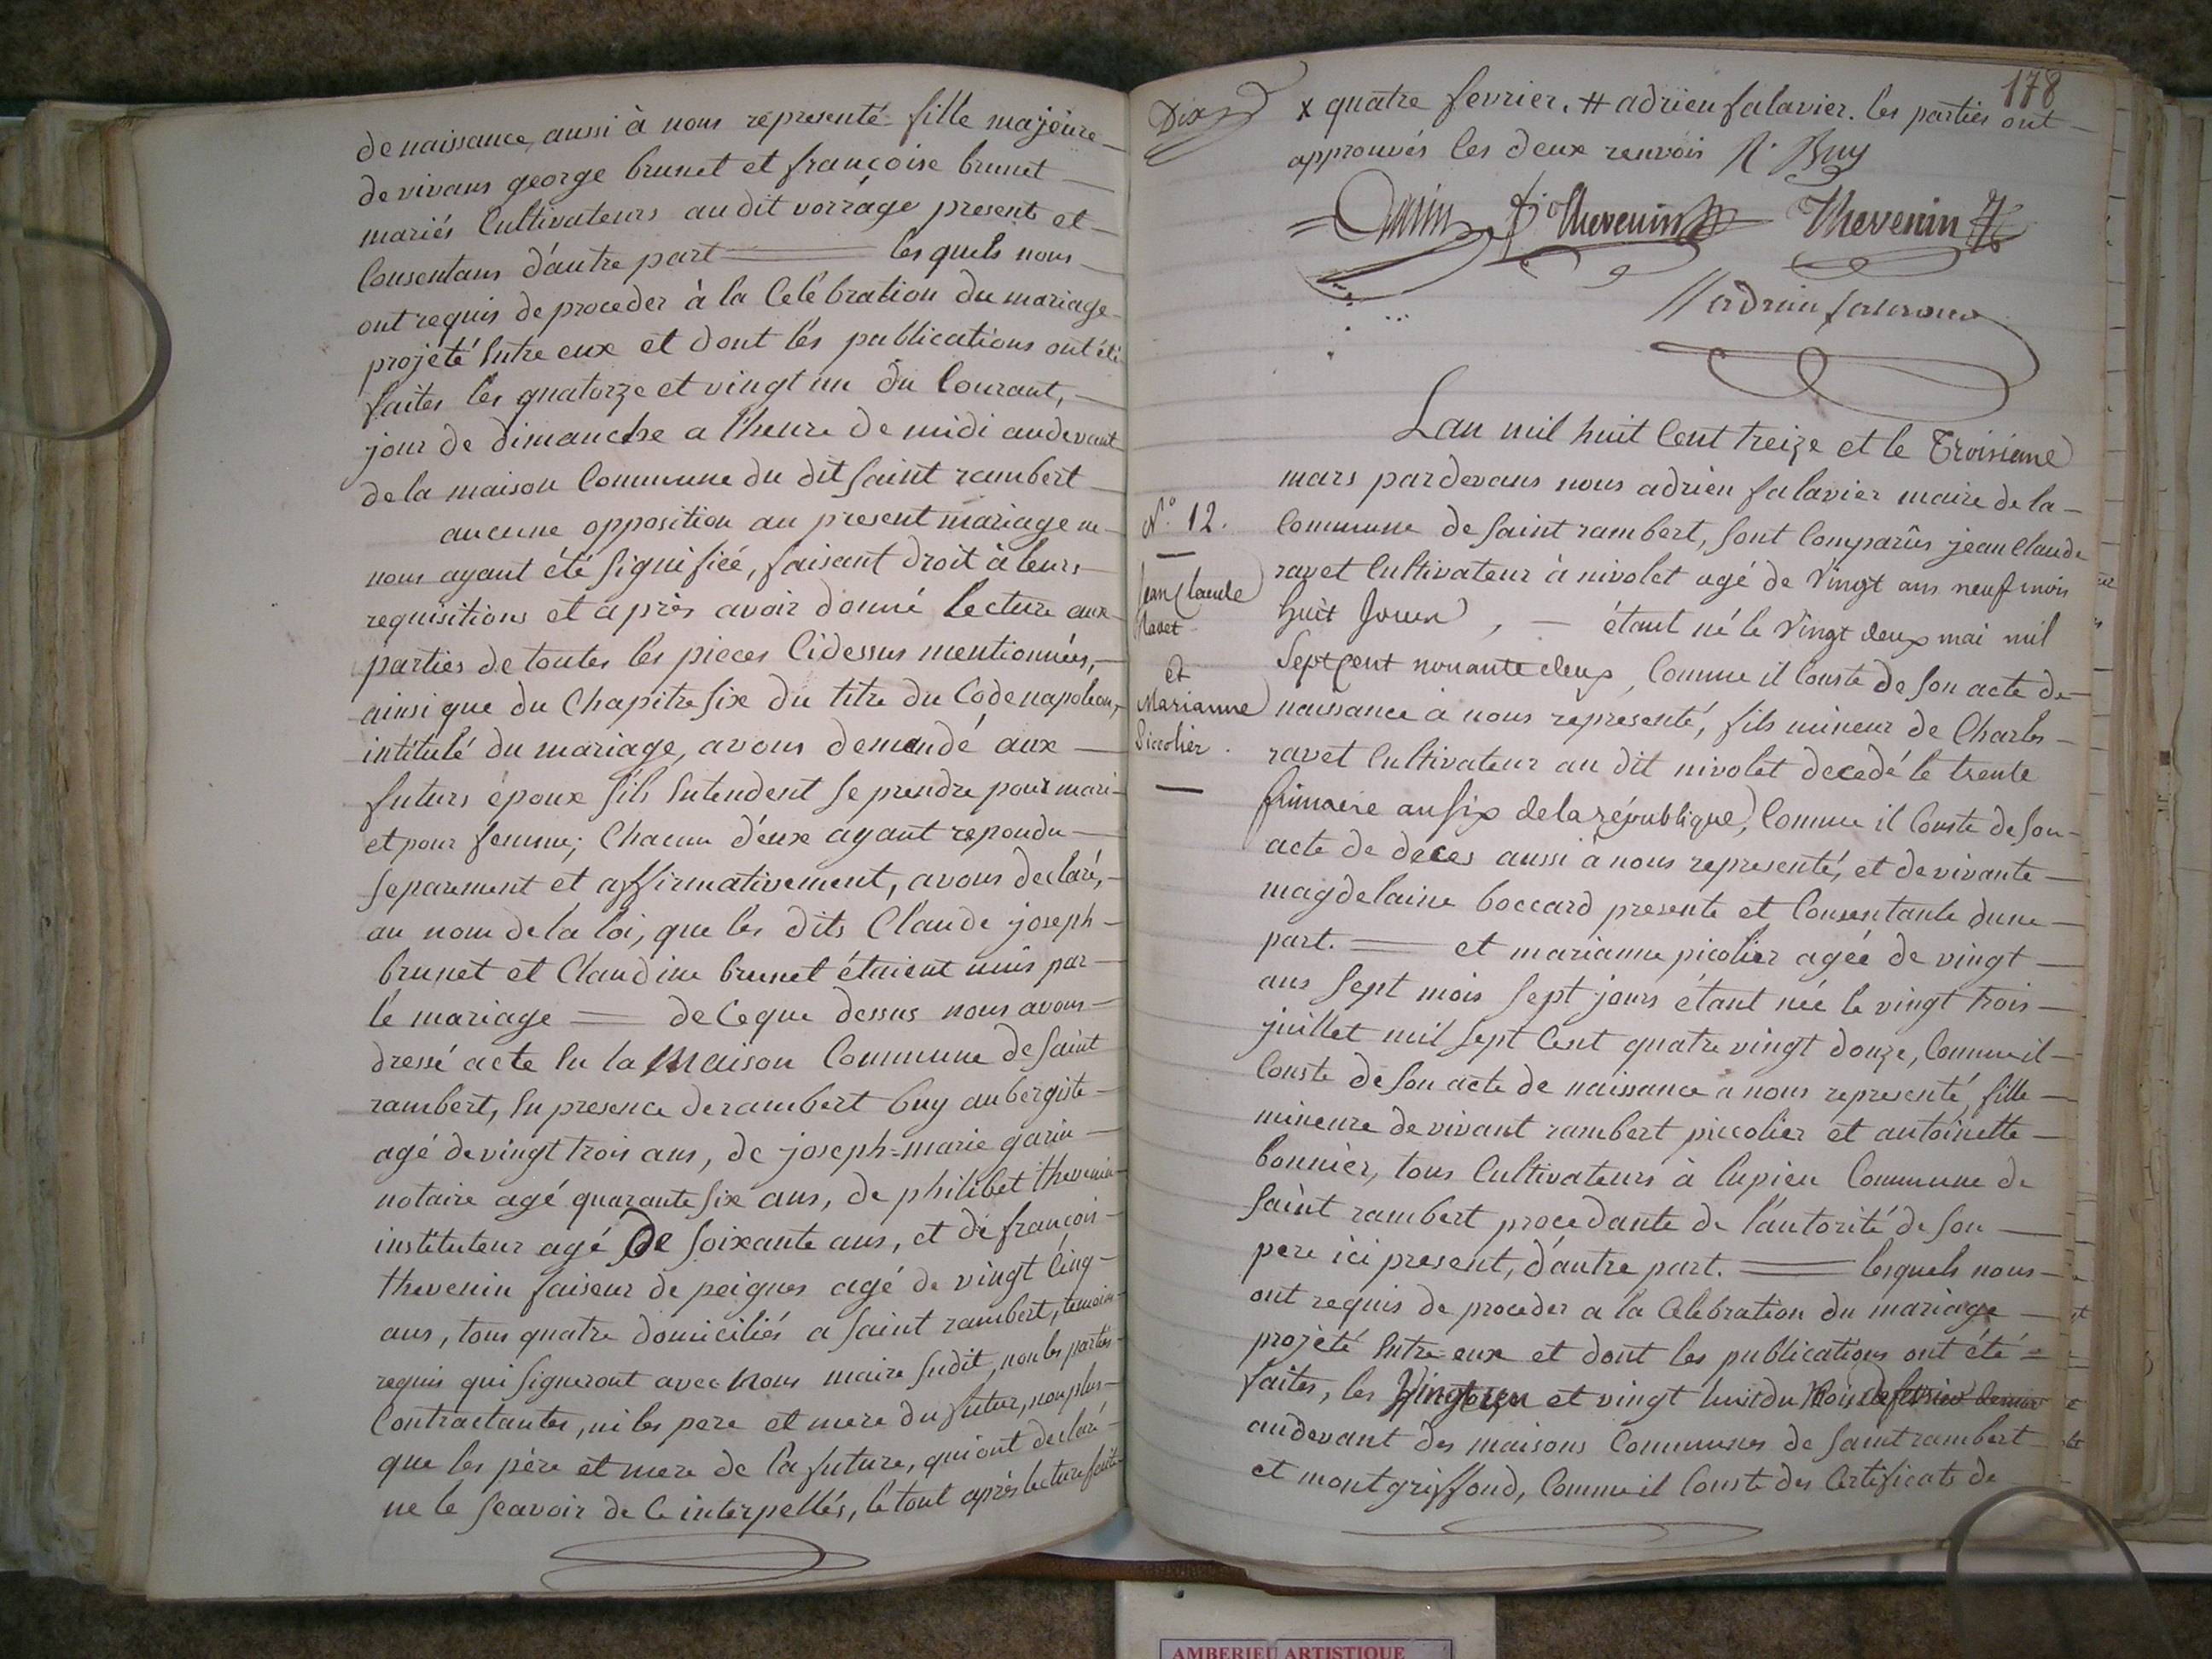 de naissance, aussi à nous representé fille majeure
de vivans george brunet et françoise brunet
mariés Cultivateurs audit vorrage presents et
Consentans d'autre part lesquels nous
ont requis de proceder à la Celébration du mariage
projété Entre eux et dont les publications ont été
faites les quatorze et vingt un du Courant,
jour de dimanche a l'heure de midi au devant
de la maison Commune du dit Saint rambert
aucune opposition au present mariage ne
nous ayant été Signifiée, faisant droit à leurs
requisitions et après avoir donné lecture aux
parties de toutes les pieces Cidessus mentionnées,
ainsi que du Chapitre Six du titre du Code napoleon,
intitulé du mariage, avons demandé aux
futurs époux S'ils Entendent Se prendre pour mari
et pour femme; Chacun d'eux ayant repondu
Separement et affirmativement, avons declaré,
au nom de la loi, que les dits Claude joseph
brunet et Claudine brunet étaient unis par
le mariage de Ceque dessus nous avons
dressé acte En la Maison Commune de Saint
rambert, En presence de rambert buy aubergiste
agé de vingt trois ans, de joseph=marie garin
notaire agé quarante Six ans, de philibet thevenin
instituteur agé De Soixante ans, et de françois
thevenin faiseur de peignes agé de vingt Cinq
ans, tous quatre domiciliés a Saint rambert, temoins
requis qui Signeront avec Nous maire Sudit, non les parties
Contractantes, ni les pere et mere du futur, non plus
que les père et mere de la future, qui ont declaré
ne le Scavoir de Ce interpellés, le tout après lecture faite
178
Dix
x quatre fevrier. # adrien falavier. les parties ont
approuvés les deux renvois R. Buy
Garin Thevenin Thevenin
adrien falavier
Lan mil huit Cent treize et le Troisieme
mars pardevans nous adrien falavier maire de la
Commune de Saint rambert, Sont Comparûs jean Claude
ravet Cultivateur à nivolet agé de Vingt ans neuf mois
huit Jours, étant né le Vingt deux mai mil
Sept Cent nonante deux, Comme il Conste de Son acte de
naissance à nous representé, fils mineur de Charles
ravet Cultivateur au dit nivolet decedé le trente
frimaire an Six de la république, Comme il Conste de Son
acte de déces aussi à nous representé, et de vivante
magdelaine boccard presente et Consentante dune
part. et marianne picolier agée de vingt
ans Sept mois Sept jours étant née le vingt trois
juillet mil Sept Cent quatre vingt douze, Comme il
Conste de Son acte de naissance a nous representé, fille
mineure de vivant rambert piccolier et antoinette
bonnier, tous Cultivateurs à lupieu Commune de
Saint rambert procedante de l'autorité de Son
pere ici present, d'autre part. lesquels nous
ont requis de proceder a la Célébration du mariage
projété Entre eux et dont les publications ont été
faites, les Vingt un et vingt huit du Mois de fevrier dernier
au devant des maisons Communes de Saint rambert
et montgriffond, Comme il Conste des Certificats de
N.° 12.
Jean Claude
Ravet
et
Marianne
Piccolier
AMBERIEU ARTISTIQUE